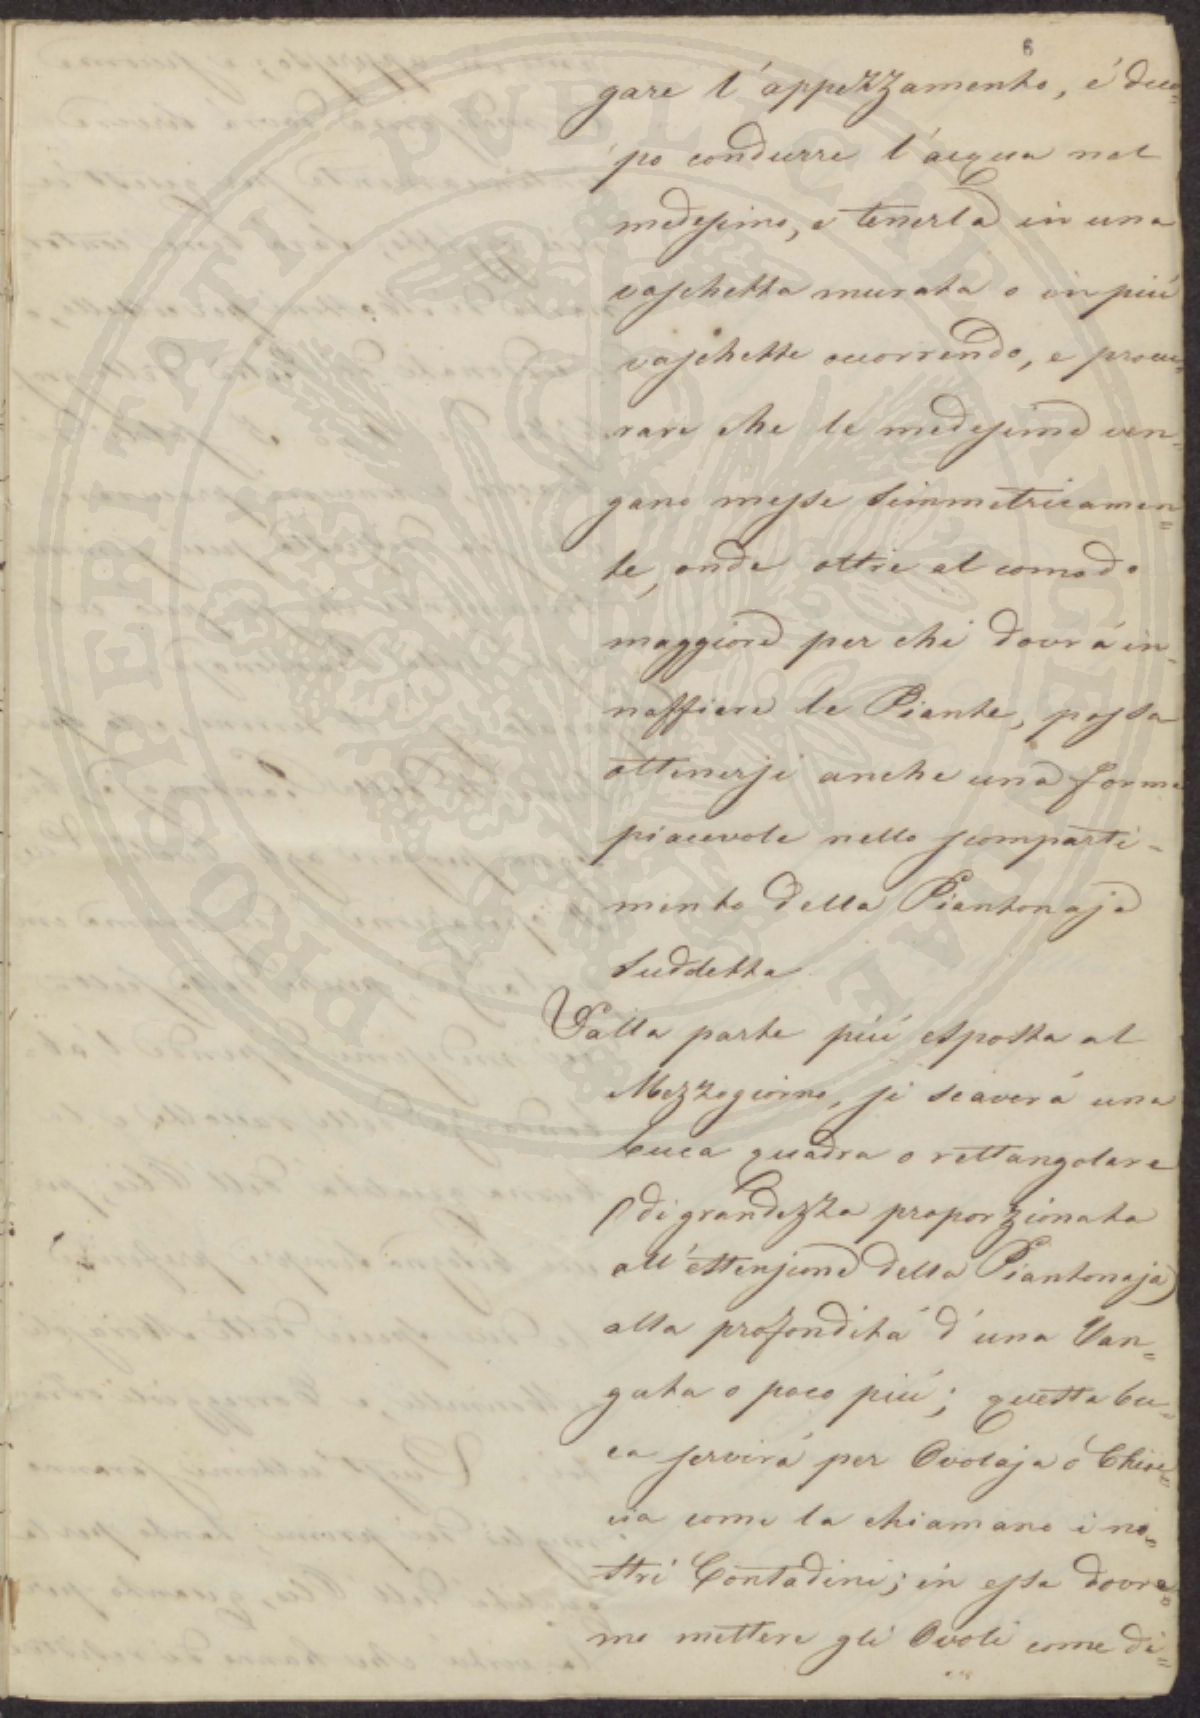 6
gare l'appezzamento, é duo-
po condurre l'acqua nel
medesimo, e tenerla in una
vaschetta murata o in piú
vaschette occorrendo, e procu-
rare che le medesime ven-
gano messe simmetricamen-
te, onde oltre al comodo
maggiore per chi dovrá in-
naffiare le Piante, possa
ottenersi anche una forma
piacevole nello scomparti-
mento della Piantonaja
suddetta
Dalla parte piú esposta al
Mezzogiorno, si scaverá una
buca quadra o rettangolare
(di grandezza proporzionata
all'estensione della Piantonaja)
alla profonditá d'una Van-
gata o poco piú; questa bu-
ca servirá per Ovolaja ó
cia come la chiamano i no-
stri Contadini; in essa dovre-
mo mettere gli Ovoli come di-
PROSPERITATI PVBLICAE AVGENDAE